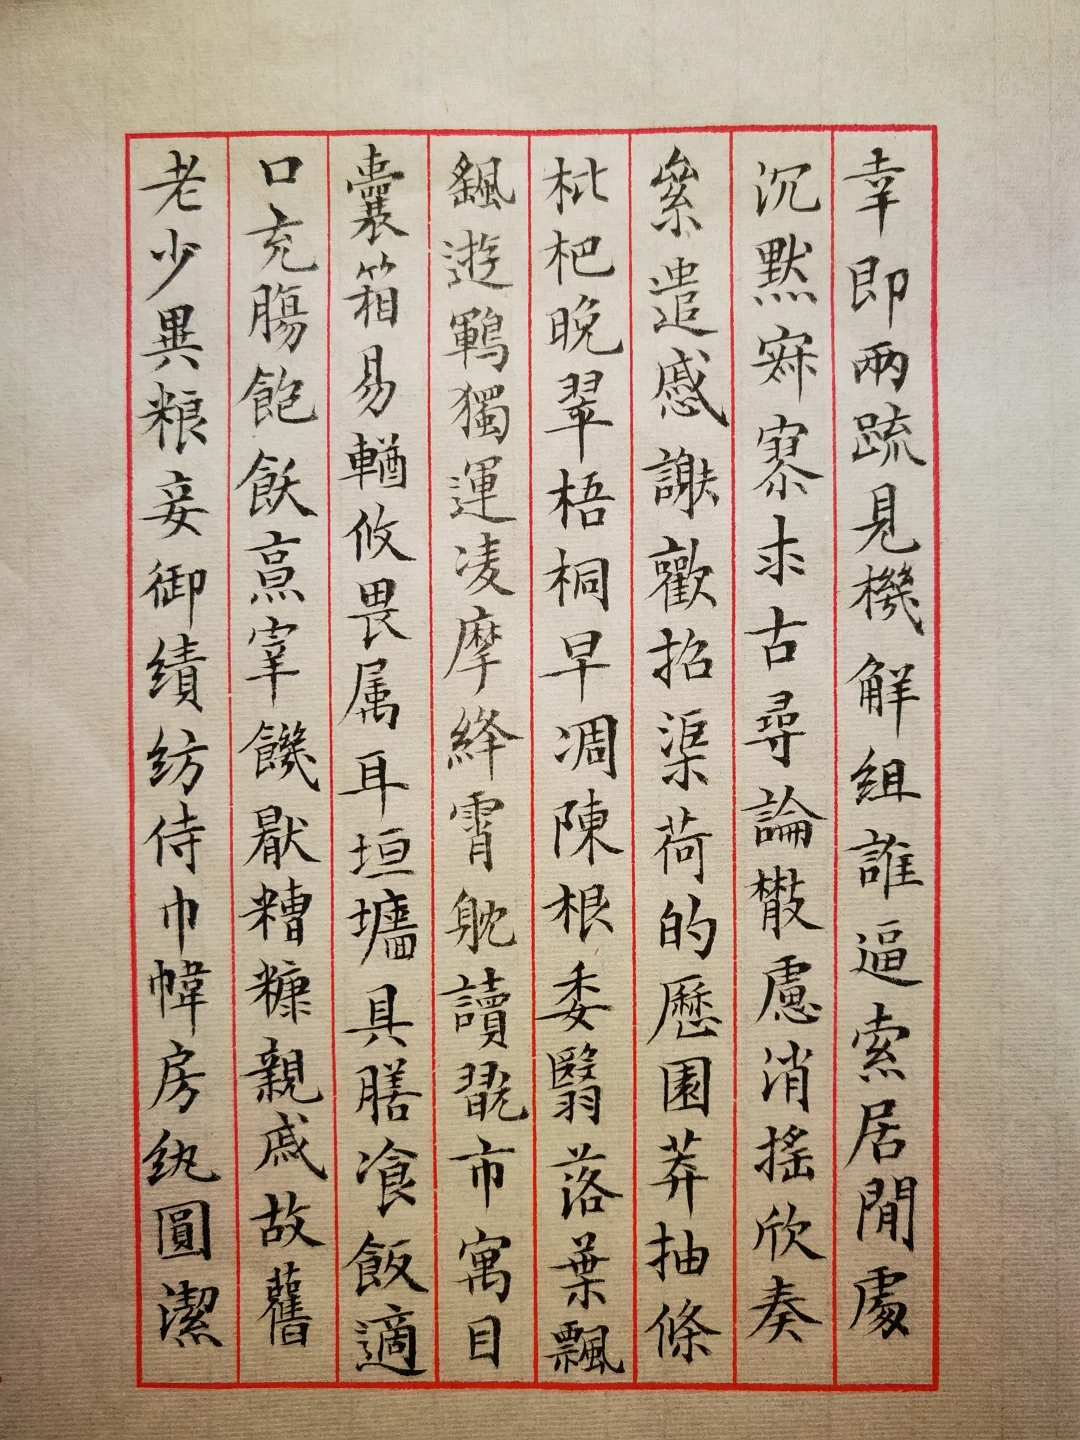 幸即兩疏見機解組誰逼索居閒處
沉默寂寥求古尋論散慮逍搖欣奏
絫遣慼謝歡招渠荷的歷園莽抽條
枇杷晚翠梧桐早凋陳根委翳落葉飄
飖遊鵾獨運凌摩絳霄躭讀翫市寓目
囊箱易輶攸畏属耳垣墻具膳飡飯適
口充腸飽飫烹宰饑厭糟糠親戚故舊
老少異粮妾御績紡侍巾幃房紈圓潔